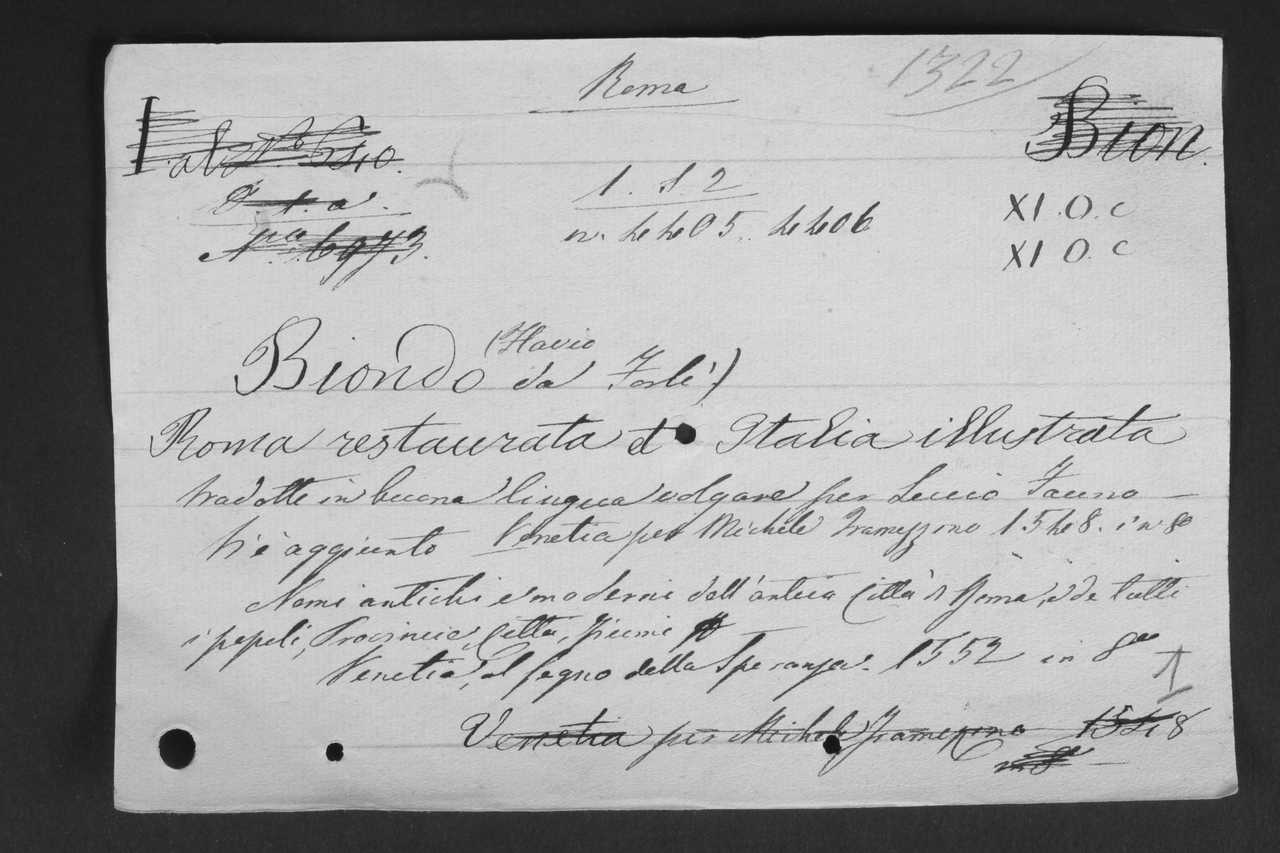 Roma
1322
al N.º 5210.
Bion.
1. S. 2
XI. O. c
Nª 6973.
n. 4405. 4406
XI O. c
Biondo (Flavio
da Forlì)
Roma restaurata et Italia illustrata
tradotte in buona lingua volgare per Lucio Fauno —
Vi è aggiunto Venetia per Michele Tramezzino 1548. in 8º
Nomi antichi e moderni dell'antica Città d Roma, e de tutti
i popoli, Provincie, Città, Fiumi
Venetia, al segno della Speranza. 1552 in 8º
1
Venetia per Michele Tramezino 1548
in 8º